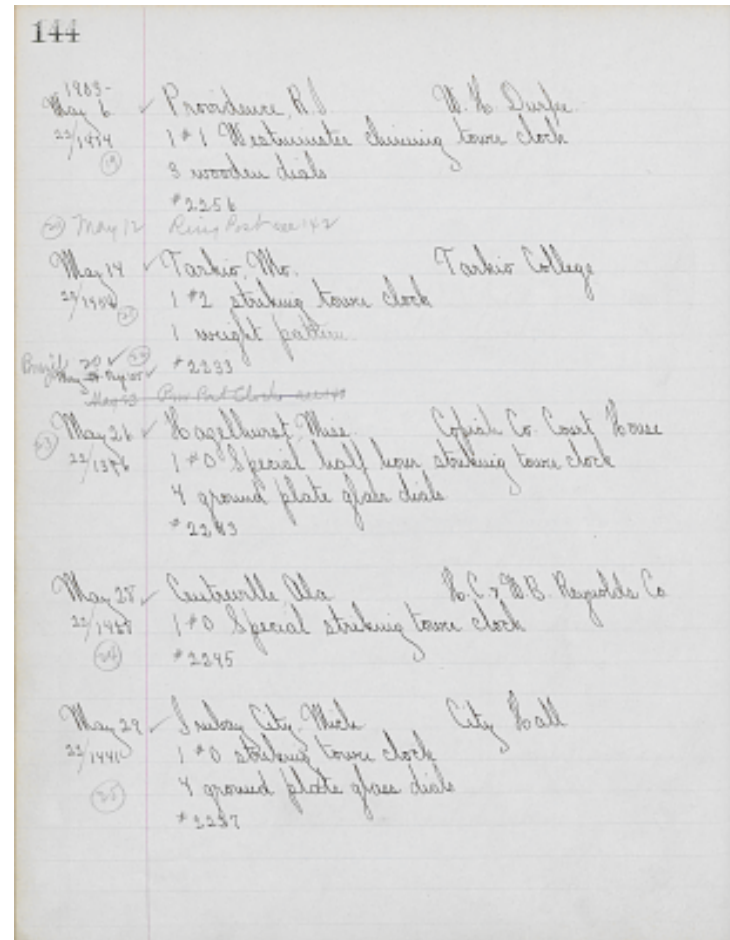 144
1903-
May 6 ✓ Providence, R.I. W. H. Durfee.
22/1434 1 #1 Westminster chiming town clock
(19) 3 wooden dials
#2256
(20) May 12 Ring Post see 142
May 14 ✓ Tarkio, Mo. Tarkio College
22/1404 1 #2 striking town clock
(21) 1 weight pattern
Brazil 20 ✓ (22) #2233
May 23 Post Clocks see
May 26 ✓ Hazelhurst, Miss. Copiah Co. Court House
(23) 22/1386 1 #0 Special half hour striking town clock
4 ground plate glass dials
#2283
May 28 ✓ Centreville Ala H. C. & W. B. Reynolds Co
22/1428 1 #0 Special striking town clock
(24) #2295
May 29 ✓ Imlay City, Mich City Hall
22/1441 1 #0 striking town clock
(25) 4 ground plate glass dials
#2297